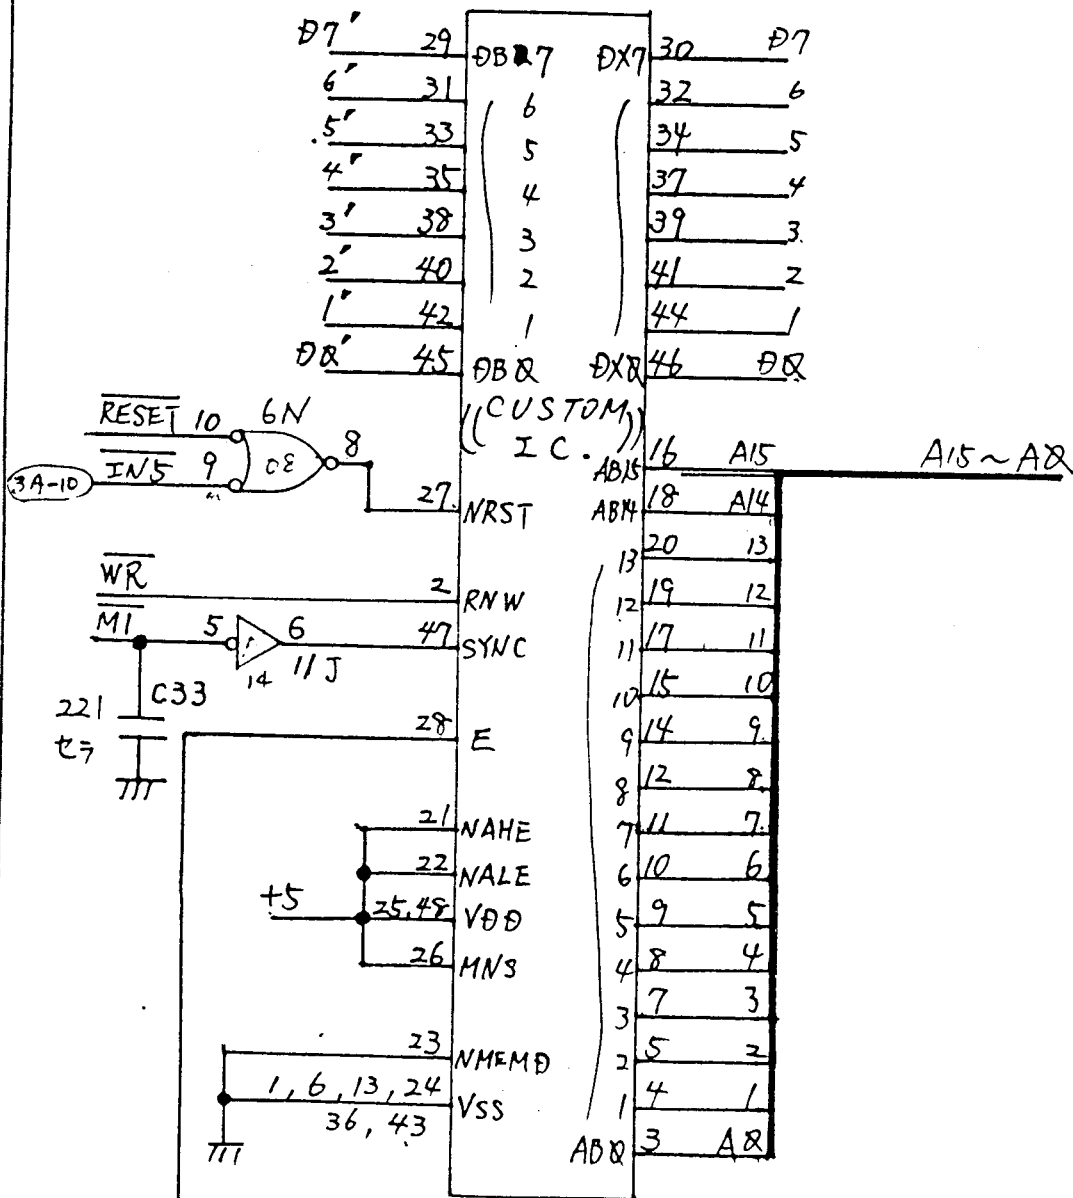 D7' 29 DB 7 DX7 30 D7
6' 31 6 32 6
5' 33 5 34 5
4' 35 4 37 4
3' 38 3 39 3
2' 40 2 41 2
1' 42 1 44 1
D0' 45 DB0 DX0 46 D0
((CUSTOM
I C. ))
RESET 10 6N
8
3A-10 IN5 9
27 NRST
WR 2 RNW
M1 5 6 47 SYNC
14 11J
221 C33
セラ
28 E
21 NAHE
22 NALE
+5 25,48 VDD
26 MNS
23 NMEMD
1, 6, 13, 24 VSS
36, 43
AB15 16 A15 A15~A0
AB14 18 A14
13 20 13
12 19 12
11 17 11
10 15 10
9 14 9
8 12 8
7 11 7
6 10 6
5 9 5
4 8 4
3 7 3
2 5 2
1 4 1
AB0 3 A0